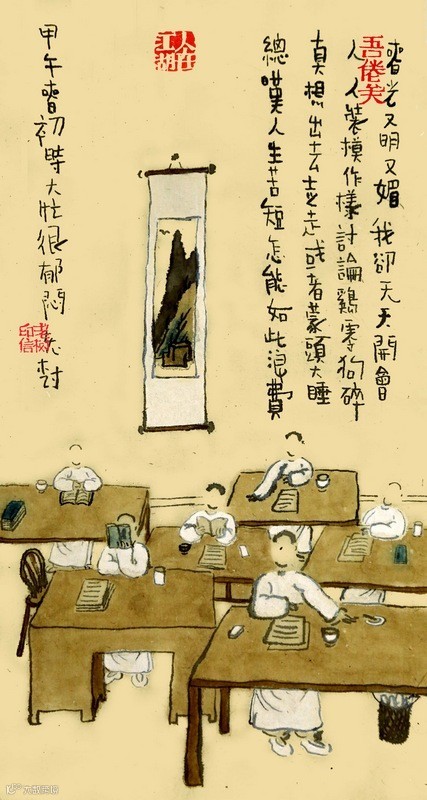 春光又明又媚 我卻天天開會
人人裝摸作樣討論鷄零狗碎
真想出去走走或者蒙頭大睡
總嘆人生苦短怎能如此浪費
甲午春初大忙很郁悶老樹
人在江湖
老树印信